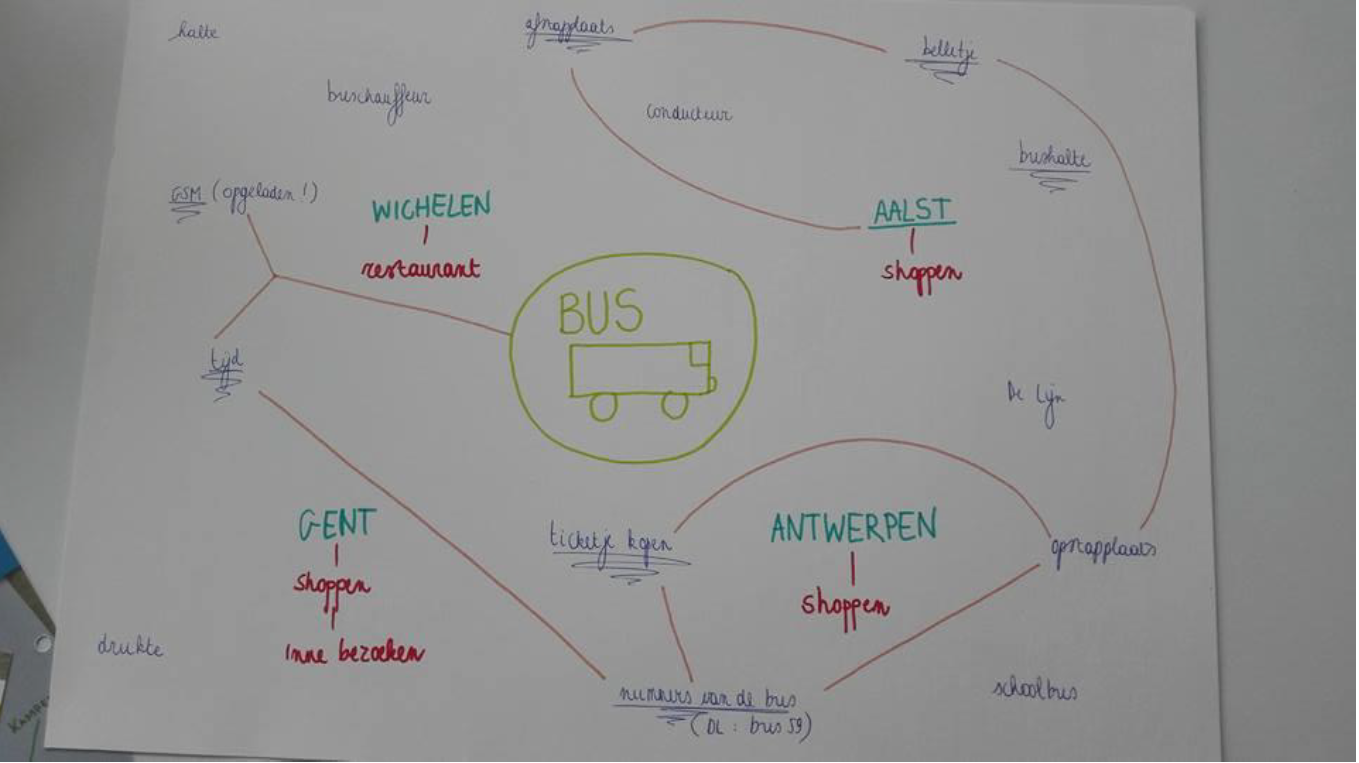 halte
afstapplaats
belletje
buschauffeur
conducteur
bushalte
GSM (opgeladen!)
WICHELEN
restaurant
AALST
shoppen
BUS
tijd
De Lijn
GENT
shoppen
inne bezoeken
ticketje kopen
ANTWERPEN
shoppen
opstapplaats
drukte
nummers van de bus
(DL: bus 59)
schoolbus
KAMPE